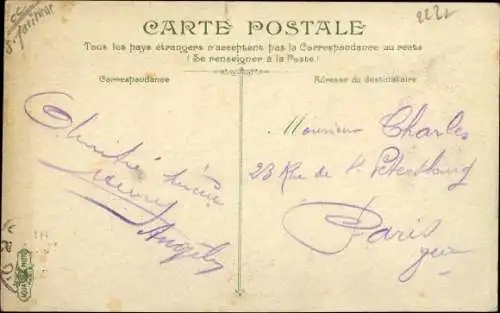 2221
CARTE POSTALE
Tous les pays étrangers n'acceptent pas la Correspondance au recto
(Se renseigner à la Poste)
Correspondance
Adresse du destinataire
Monsieur Charles
23 Rue de St Pétersbourg
Paris
Amitié
Angély